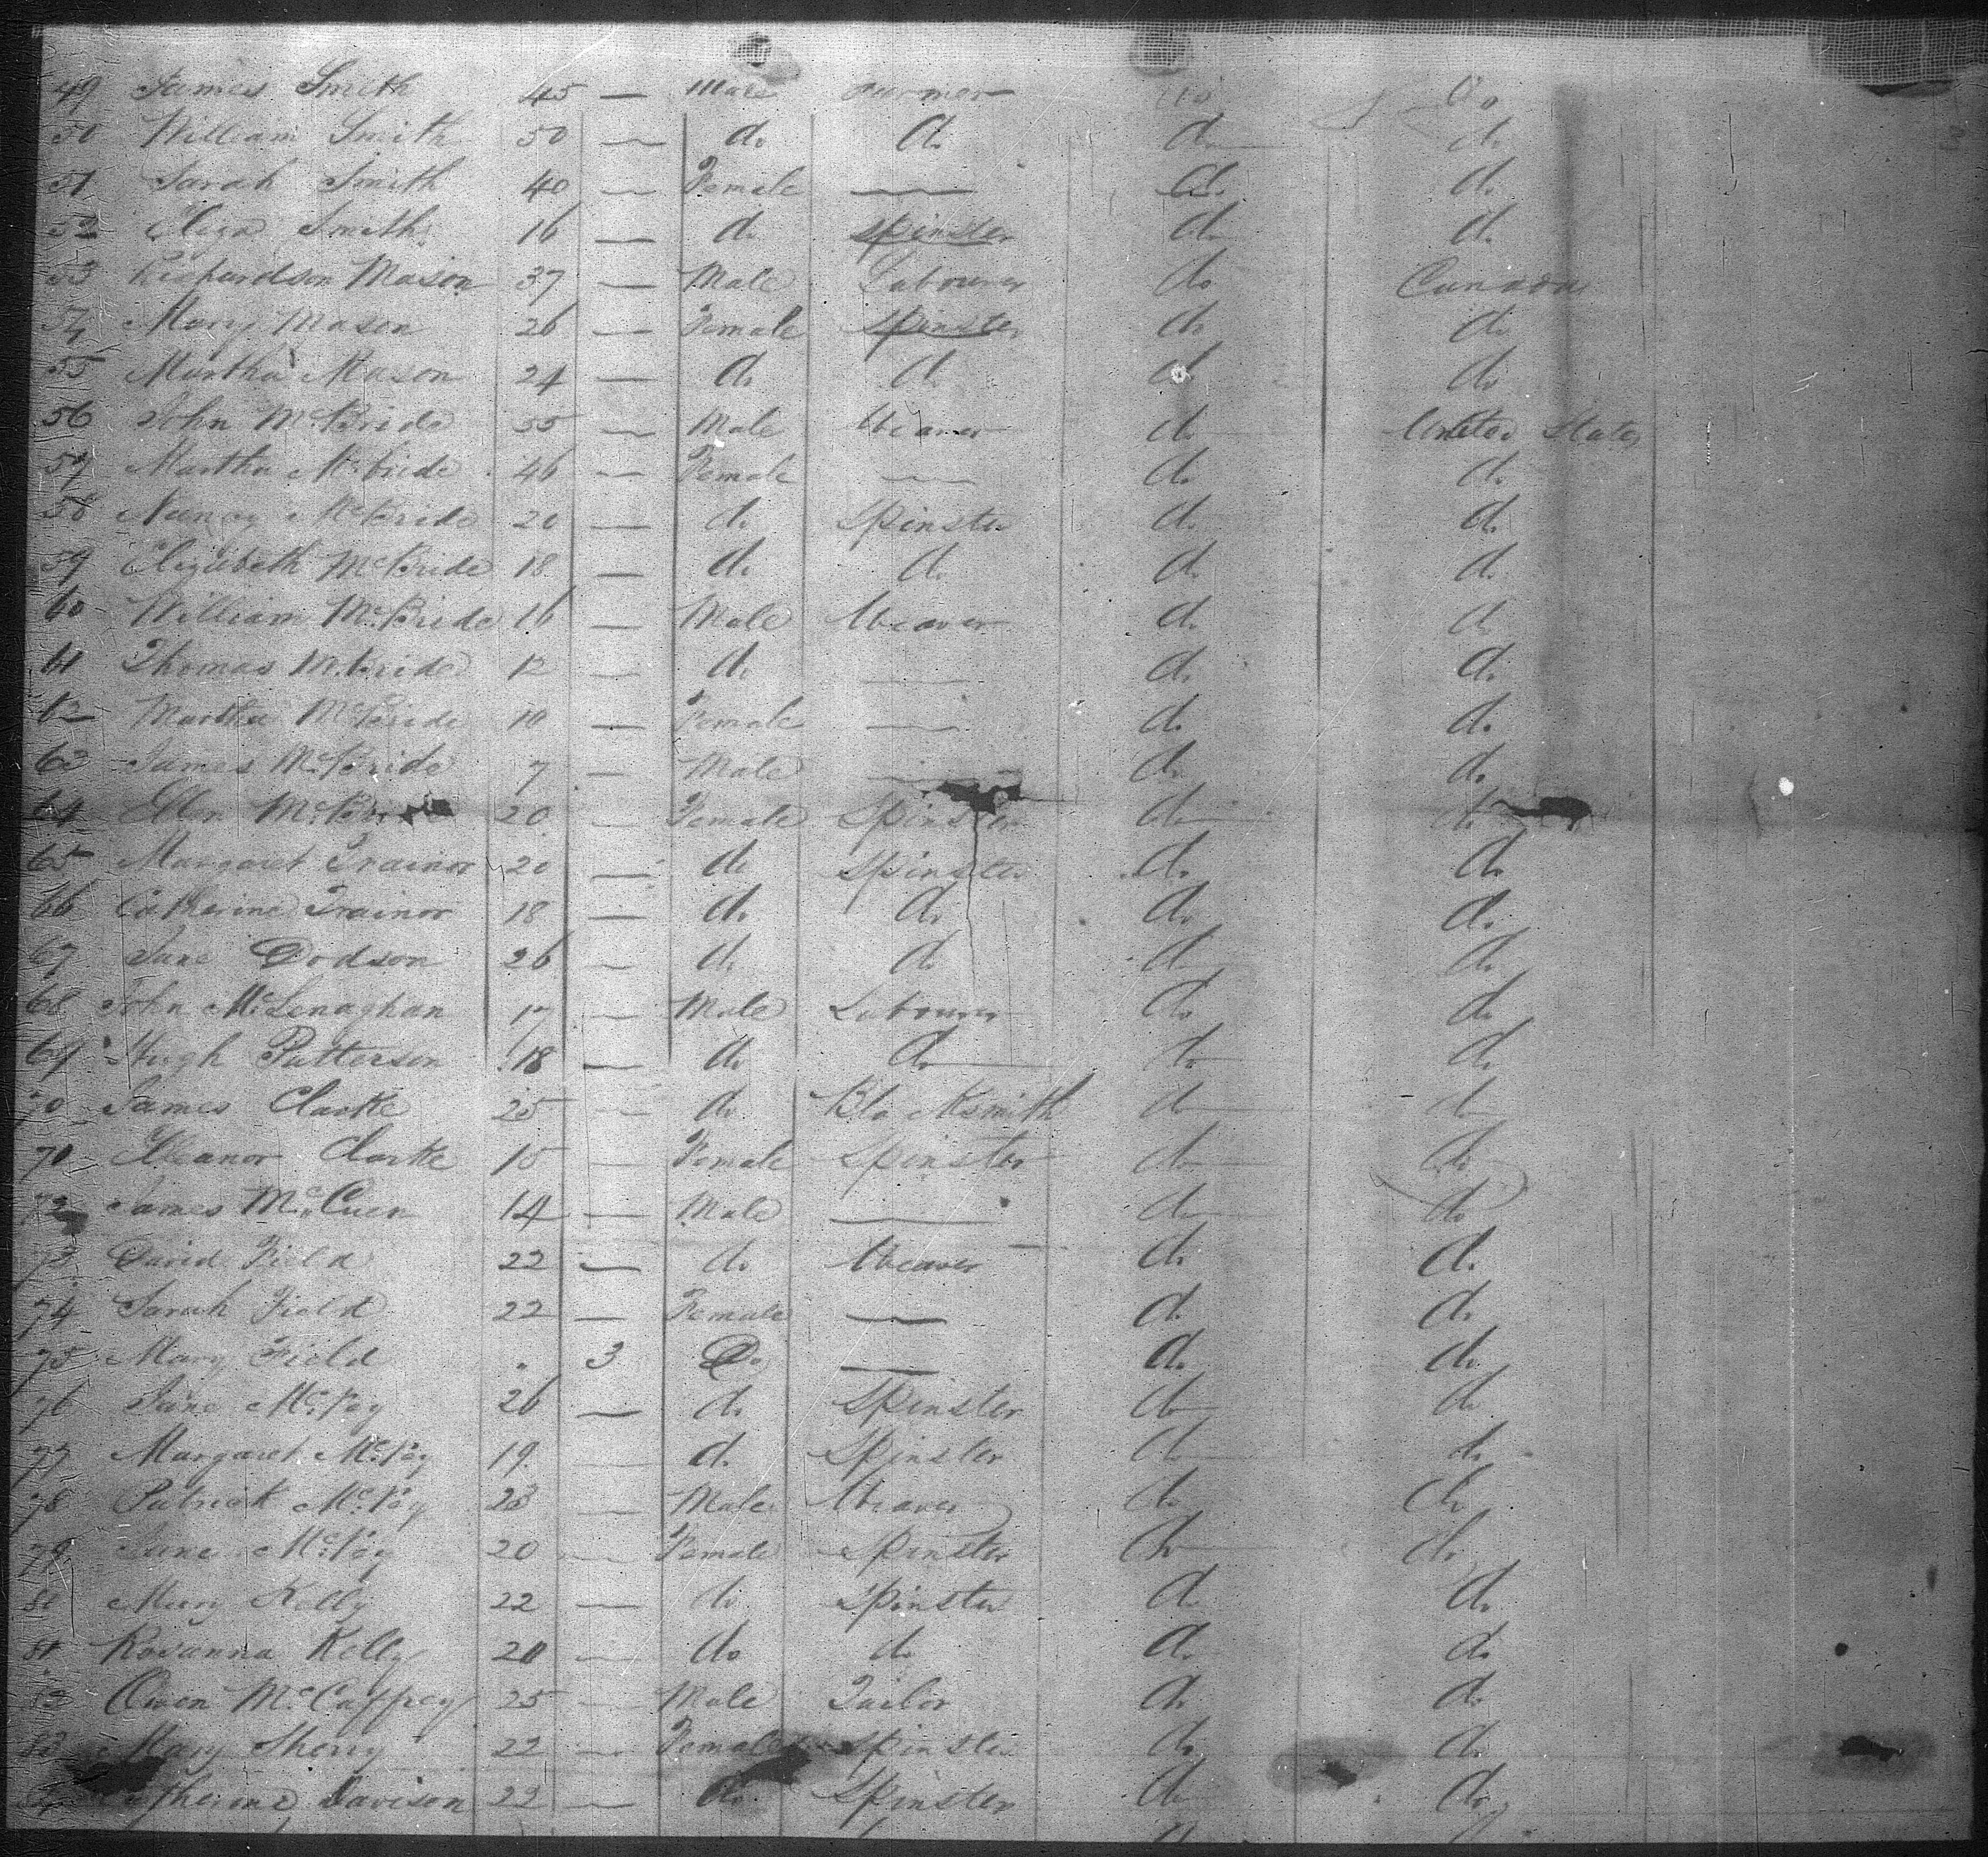 49 James Smith 45 — Male Farmer do do
50 William Smith 50 — do do do do
51 Sarah Smith 40 — Female — do do
52 Eliza Smith 16 — do Spinster do do
53 Richardson Mason 37 — Male Labourer do Canada
54 Mary Mason 26 — Female Spinster do do
55 Martha Mason 24 — do do do do
56 John McBride 55 — Male Weaver do United States
57 Martha McBride 46 — Female — do do
58 Nancy McBride 20 — do Spinster do do
59 Elizebeth McBride 18 — do do do do
60 William McBride 16 — Male Weaver do do
61 Thomas McBride 12 — do — do do
62 Martha McBride 10 — Female — do do
63 James McBride 7 — Male — do do
64 Ellen 20 — Female Spinster do do
65 Margaret Trainor 20 — do Spinster do do
66 Catherine Trainor 18 — do do do do
67 Jane Dodson 26 — do do do do
68 John McLenaghan 17 — Male Labourer do do
69 Hugh Patterson 18 — do do do do
70 James Clarke 25 — do Blacksmith do do
71 Eleanor Clarke 15 — Female Spinster do do
72 James McCuen 14 — Male — do do
73 David Field 22 — do Weaver do do
74 Sarah Field 22 — Female — do do
75 Mary Field 3 Do — do do
76 Jane 26 — do Spinster do do
77 Margaret 19 — do Spinster do do
78 Patrick 23 — Male Weaver do do
79 Jane 20 — Female Spinster do do
80 Mary Kelly 22 — do Spinster do do
81 Rosanna Kelly 20 — do do do do
Owen McCaffrey 25 — Male Tailor do do
83 Mary Sherry 22 — Female Spinster do do
Catherine Davison 22 — do Spinster do do